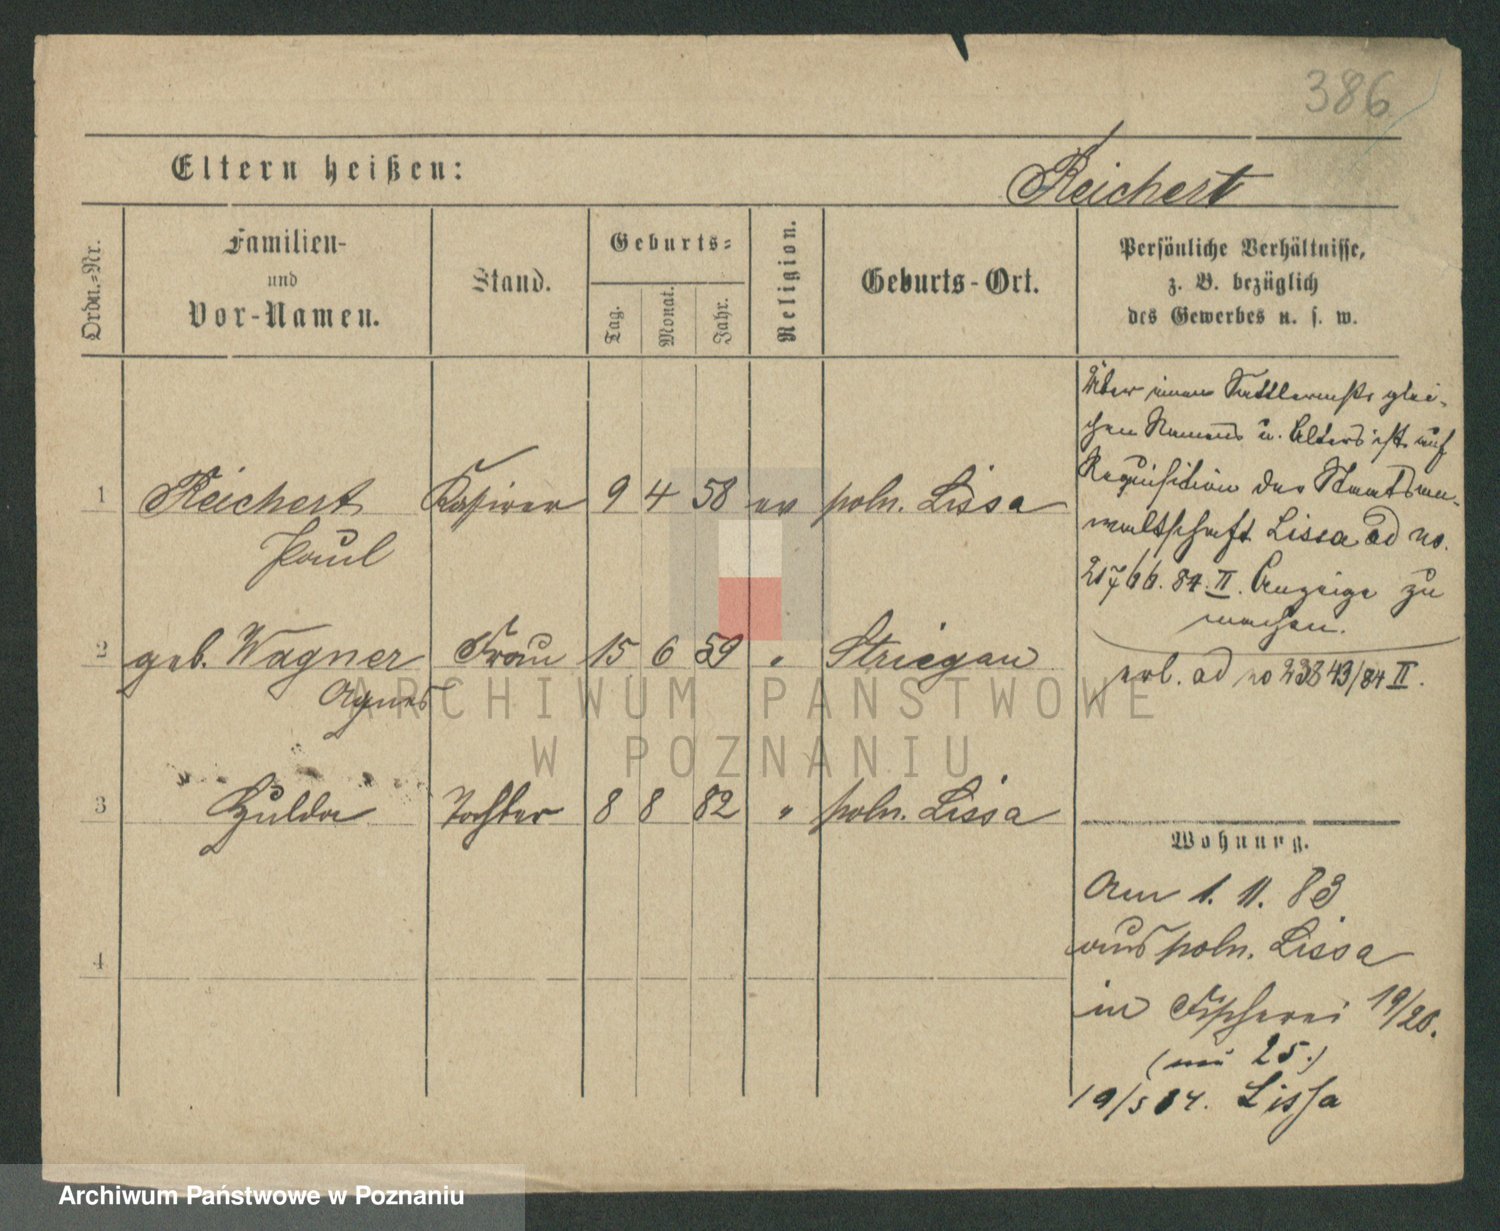 386
Eltern heißen:
Reichert
Ordn.-Nr.
Familien-
und
Vor-Namen.
Stand.
Geburts-
Tag.
Monat.
Jahr.
Religion.
Geburts-Ort.
Persönliche Verhältnisse,
z. B. bezüglich
des Gewerbes u. s. w.
Über einen glei-
chen Namens u. Alters ist auf
Requisition der Staatsan-
waltschaft Lissa ad no.
84. II. Anzeige zu
machen.
erl. ad no 23843/84 II.
1 Reichert 9 4 58 ev poln. Lissa
Paul
2 geb. Wagner Frau 15 6 59 " Striegau
Agnes
3 Hulda Tochter 8 8 82 " poln. Lissa
4
Wohnung.
Am 1. 11. 83
aus poln. Lissa
in Fischerei 19/20.
(25.)
19/5 84. Lissa
ARCHIWUM PAŃSTWOWE
W POZNANIU
Archiwum Państwowe w Poznaniu